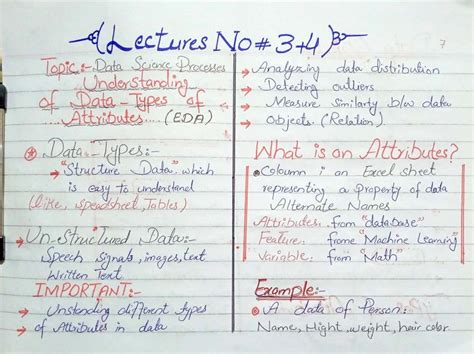 Lectures No # 3+4
7
Topic:- Data Science Processes
Understanding
of Data-Types of
Attributes (EDA)
Data-Types:-
→ "Structure Data" which
is easy to understand
(like, spreadsheet, Tables)
→ Un-Structured Data:-
Speech signals, images, text
Written Text
IMPORTANT:-
→ Unstanding different types
→ of Attributes in data
→ Analyzing data distribution
→ Detecting outliers
→ Measure Similarity b/w data
→ Objects. (Relation)
What is an Attributes?
Coloumn in an Excel sheet
representing a Property of data
Alternate Names
Attributes: from "database"
Feature: frome "Machine Learning"
Variable: from "Math"
Example:-
A data of Person:
Name, Hight, weight, hair color